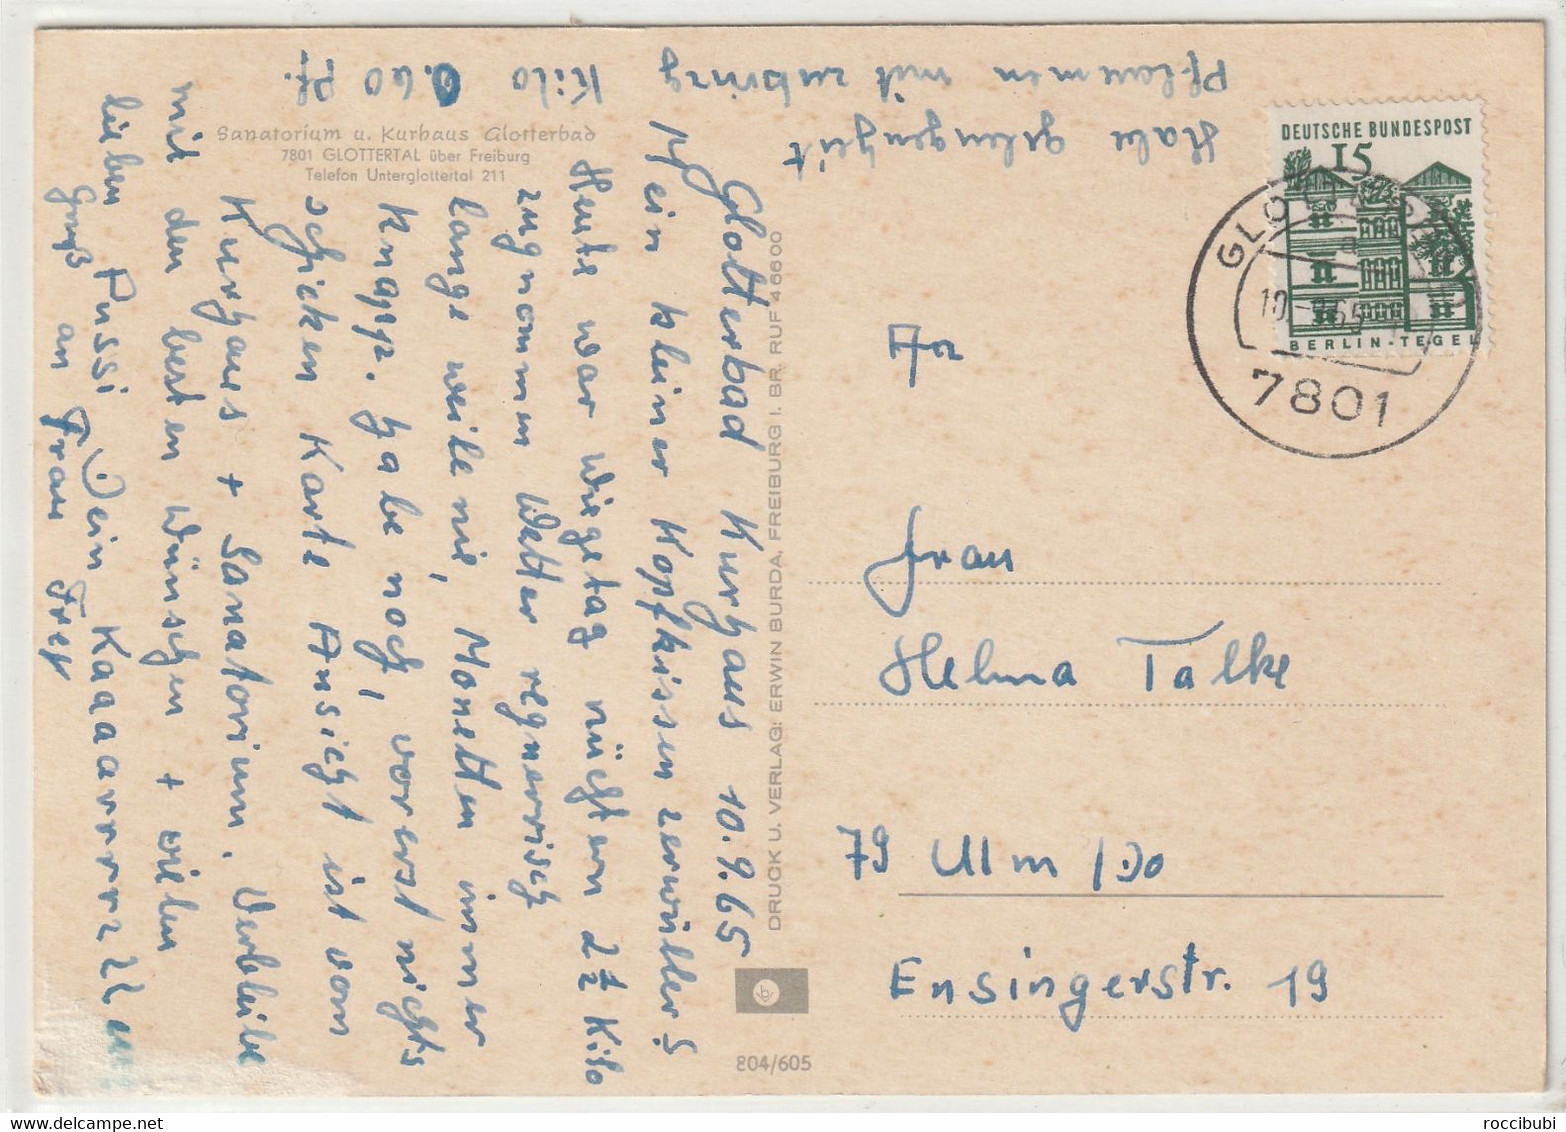 Sanatorium u. Kurhaus Glotterbad
7801 GLOTTERTAL über Freiburg
Telefon Unterglottertal 211
Glotterbad Kurhaus 10.9.65
Mein kleiner Kopfkissenzerwüller!
Heute war Wiegetag nüchtern 2 1/2 Kilo
zugnommen Wetter regnerrisch
lange weile nie, Monetten immer
Knapp. habe noch, vorerst nichts
schicken Karte Ansicht ist vom
Kurhaus + Sanatorium. Verbleibe
mit den besten Wünschen + vielen
lieben Pussi Dein
Gruß an Frau Frey
Habe gelegenheit
Pflaumen mit zubring
Kilo 0.60 Pf.
DRUCK U. VERLAG: ERWIN BURDA, FREIBURG I. BR. RUF 46600
804/605
DEUTSCHE BUNDESPOST
15
BERLIN-TEGEL
10.-9.65
7801
An
Frau
Helma Talke
79 Ulm /Do
Ensingerstr. 19
roccibubi